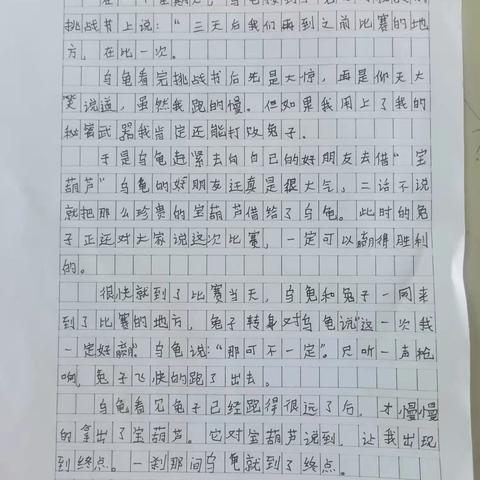 挑战书上说：“三天后我们再到之前比赛的地
方，在比一次。
乌龟看完挑战书后先是大惊，再是仰天大
笑说道，虽然我跑的慢。但如果我用上了我的
秘密武器我肯定还能打败兔子。
于是乌龟赶紧去向自已的好朋友去借“宝
葫芦”乌龟的好朋友还真是很大气，二话不说
就把那么珍贵的宝葫芦借给了乌龟。此时的兔
子正还对大家说这次比赛，一定可以赢得胜利
的。
很快就到了比赛当天，乌龟和兔子一同来
到了比赛的地方，兔子转身对乌龟说“这一次我
一定好赢”。乌龟说：“那可不一定”。只听一声枪
响，兔子飞快的跑了出去。
乌龟看见兔子已经跑得很远了后，才慢慢
的拿出了宝葫芦。它对宝葫芦说到，让我出现
到终点。一刹那间乌龟就到了终点。